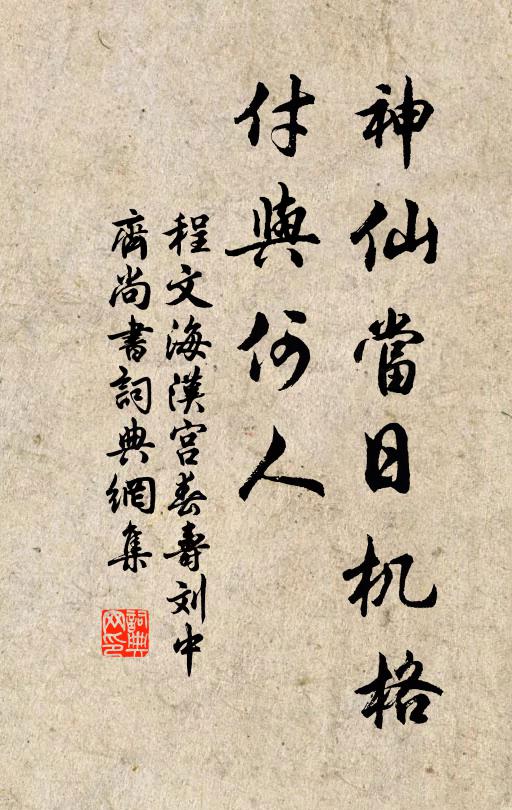 神仙當日机格
付與何人
程文海漢宮春壽刘中
齊尚書詞典網集
詞典
网印